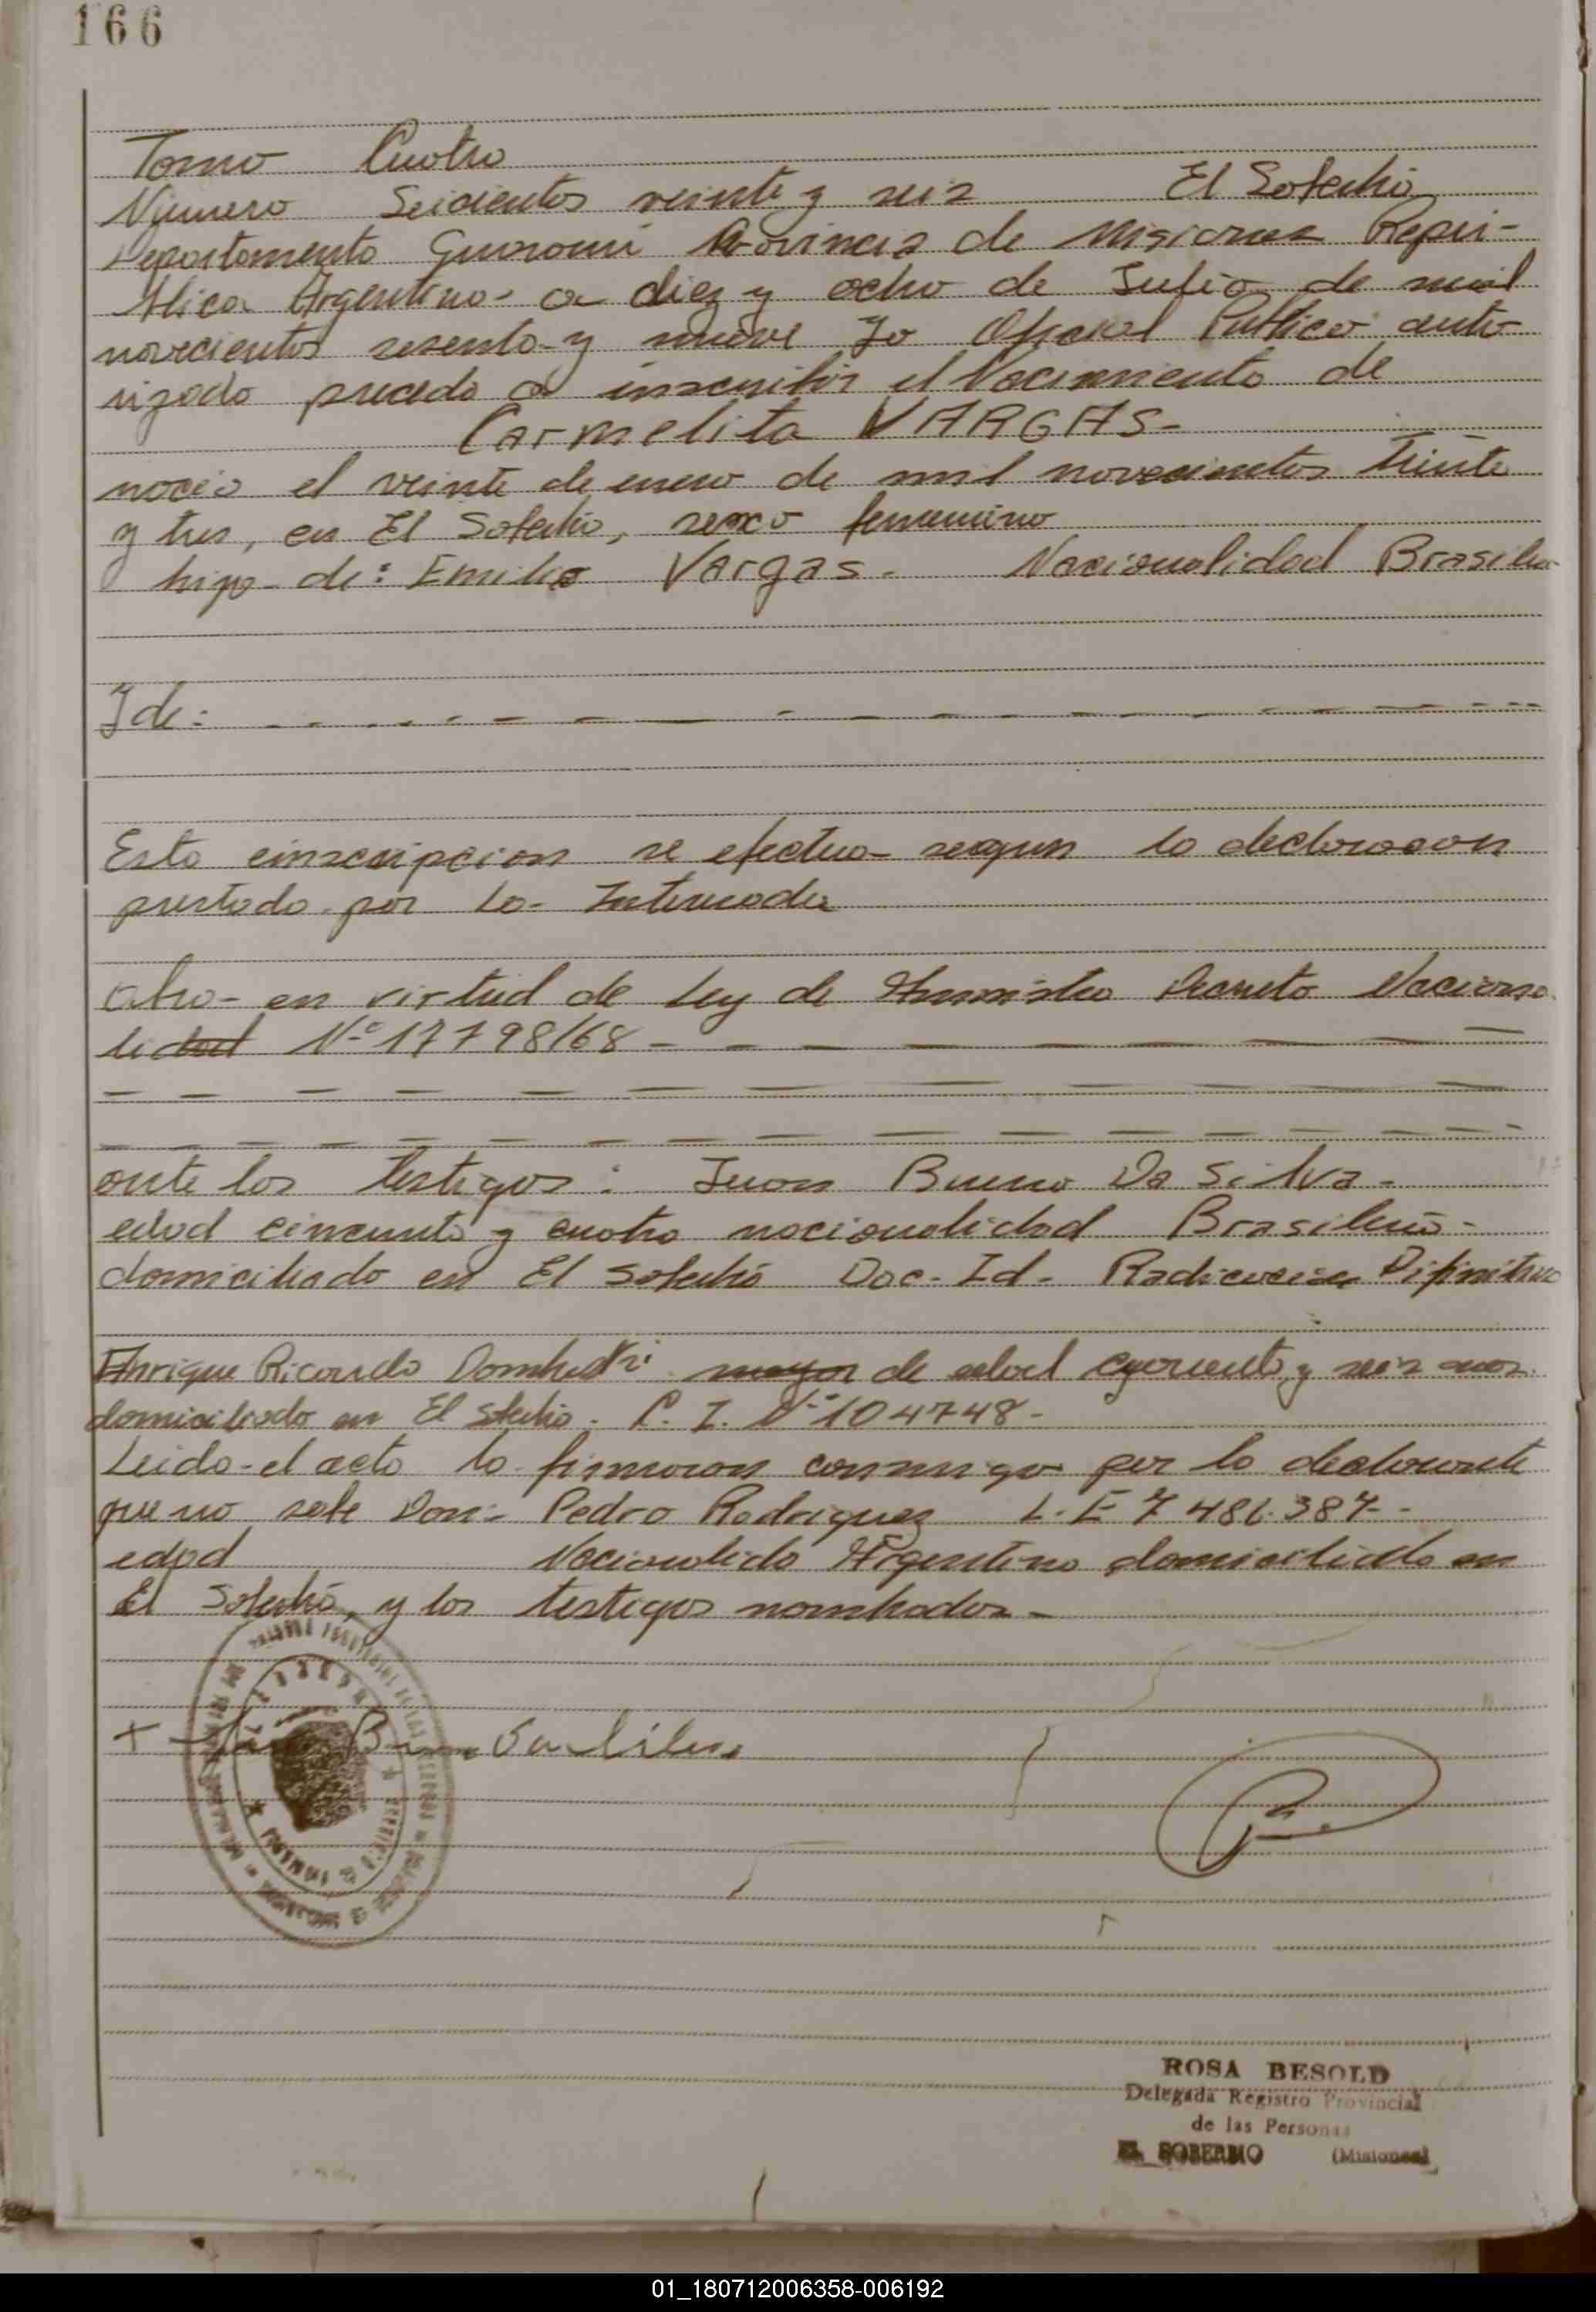 166
Tomo Cuatro
Número Seicientos veinte y seis El Soberbio
Departamento Guarani Provincia de Misiones Repú-
blica Argentina a diez y ocho de Julio de mil
novecientos sesenta y nueve Yo Oficial Publico auto
rizado procedo a inscribir el Nacimiento de
Carmelita VARGAS-
nacio el veinte de enero de mil novecientos treinta
y tres, en El Soberbio, sexo femenino
hijo de: Emilio Vargas. Nacionalidad Brasileño
Y de:
Esta inscripcion se efectua segun la declaracion
prestada por la Interesada
en virtud de Ley de Decreto Naciona
lidad Nº 17798/68
ante los testigos: Juan Bueno Da Silva.
edad cincuenta y cuatro nacionalidad Brasileño-
domiciliado en El Soberbio Doc. Id. Radicacion Difinitiva
Enrique Ricardo mayor de edad y seis años
domiciliado en El Soberbio. C. I. Nº 104748-
Leida el acta la firmaron conmigo por la declarante
que no sabe Don: Pedro Rodriguez L.E 7 486.387-
edad Nacionalida Argentino domiciliado en
El Soberbio, y los testigos nombrados-
+ Da Silva
ROSA BESOLD
Delegada Registro Provincial
de las Personas
EL SOBERBIO (Misiones)
01_180712006358-006192